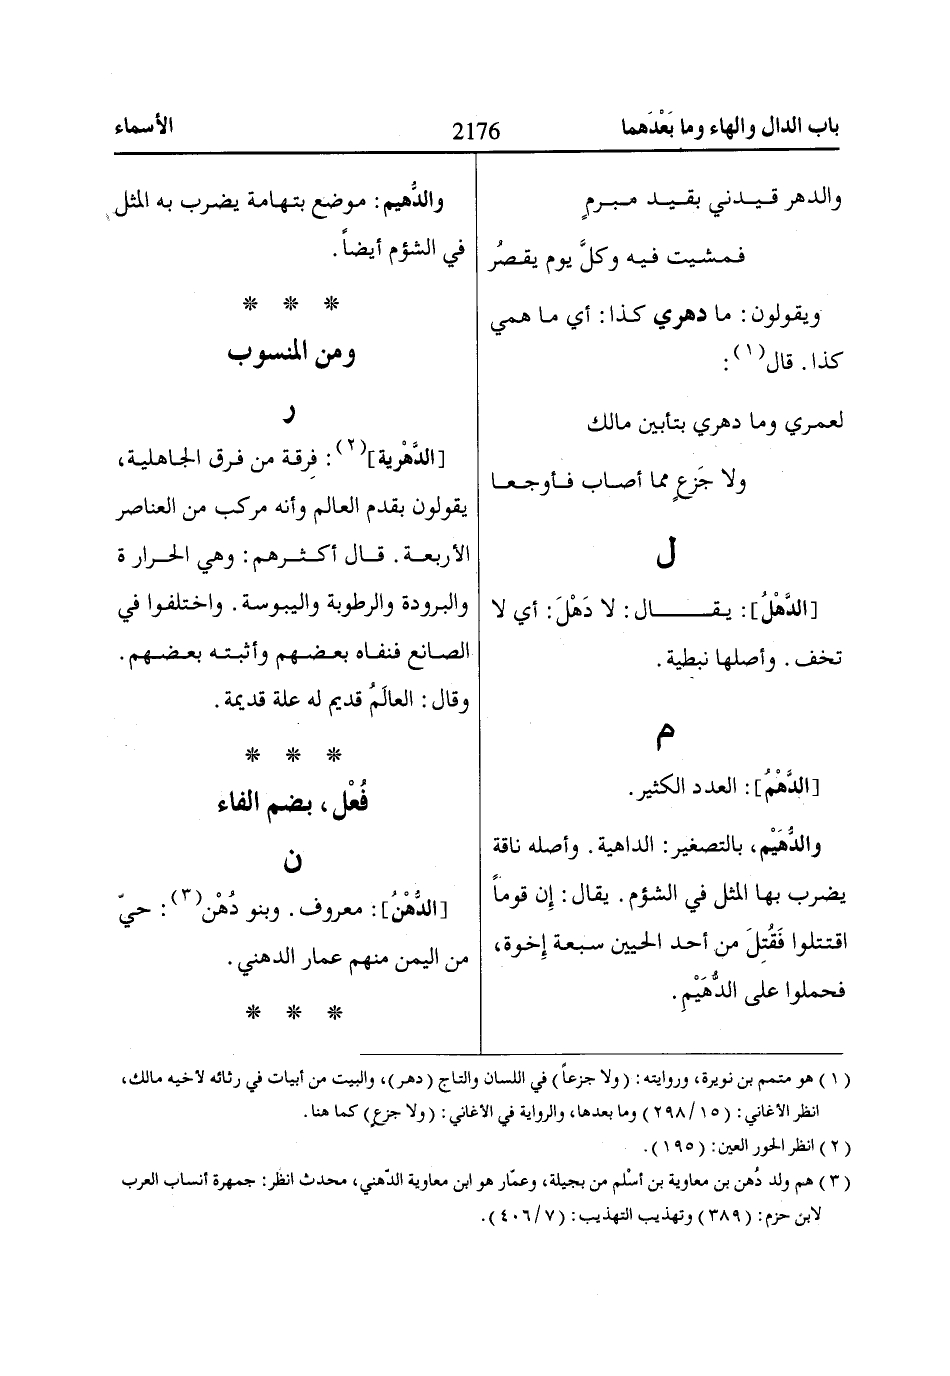 باب الدال والهاء وما بَعْدَهما
2176
الأسماء
والدهر قيدني بقيد مبرمٍ
فمشيت فيه وكلَّ يوم يقصرُ
ويقولون: ما دهري كذا: أي ما همي
كذا. قال(١):
لعمري وما دهري بتأبين مالك
ولا جَزعٍ مما أصاب فأوجعا
ل
[الدَّهْلُ]: يقال: لا دَهْلَ: أي لا
تخف. وأصلها نبطية.
م
[الدَّهْمُ]: العدد الكثير.
والدُّهَيْم، بالتصغير: الداهية. وأصله ناقة
يضرب بها المثل في الشؤم. يقال: إن قوماً
اقتتلوا فَقُتِلَ من أحد الحيين سبعة إخوة،
فحملوا على الدُّهَيْمِ.
والدُّهيم: موضع بتهامة يضرب به المثل
في الشؤم أيضاً.
* * *
ومن المنسوب
ر
[الدَّهْرِية](٢): فرقة من فرق الجاهلية،
يقولون بقدم العالم وأنه مركب من العناصر
الأربعة. قال أكثرهم: وهي الحرارة
والبرودة والرطوبة واليبوسة. واختلفوا في
الصانع فنفاه بعضهم وأثبته بعضهم.
وقال: العالَمُ قديم له علة قديمة.
* * *
فُعْل، بضم الفاء
ن
[الدُّهْنُ]: معروف. وبنو دُهْن(٣): حيّ
من اليمن منهم عمار الدهني.
* * *
(١) هو متمم بن نويرة، وروايته: (ولا جزعاً) في اللسان والتاج (دهر)، والبيت من أبيات في رثائه لأخيه مالك،
انظر الأغاني: (٢٩٨/١٥) وما بعدها، والرواية في الأغاني: (ولا جزعٍ) كما هنا.
(٢) انظر الحور العين: (١٩٥).
(٣) هم ولد دُهن بن معاوية بن أسْلم من بجيلة، وعمّار هو ابن معاوية الدّهني، محدث انظر: جمهرة أنساب العرب
لابن حزم: (٣٨٩) وتهذيب التهذيب: (٤٠٦/٧).